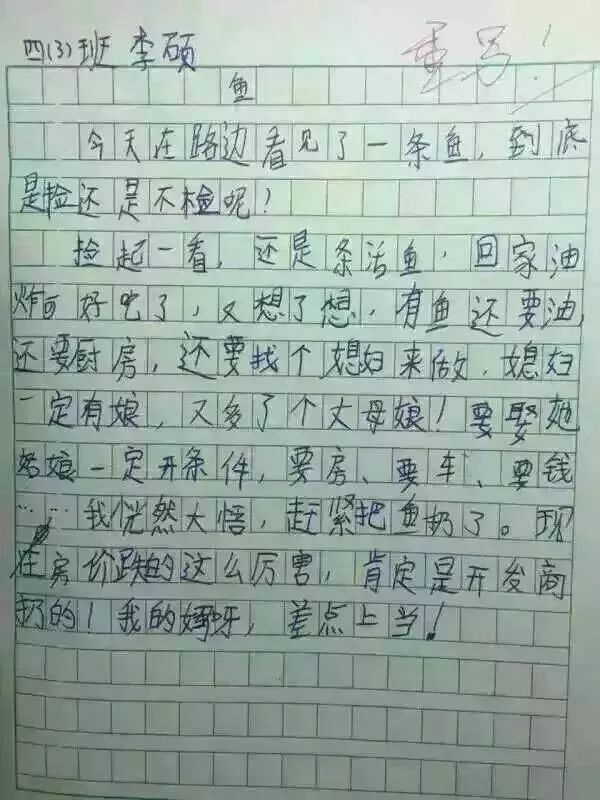 四(3)班 李硕
重写!
鱼
今天在路边看见了一条鱼，到底
是捡还是不检呢？
捡起一看，还是条活鱼，回家油
炸可好吃了，又想了想，有鱼还要油，
还要厨房，还要找个媳妇来做，媳妇
一定有娘，又多了个丈母娘！要娶她
姑娘一定开条件，要房、要车、要钱
……我恍然大悟，赶紧把鱼扔了。现
在房价跌的这么厉害，肯定是开发商
扔的！我的妈呀，差点上当！